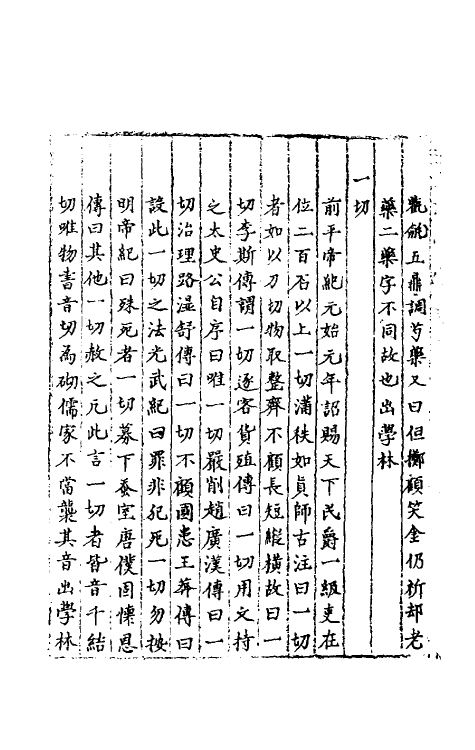 觀饌五鼎調芍藥又曰但擲顧笑金仍祈却老
藥二藥字不同故也出學林
一切
前平帝紀元始元年詔賜天下民爵一級吏在
位二百石以上一切滿秩如真師古注曰一切
者如以刀切物取整齊不顧長短縱橫故曰一
切李斯傳謂一切逐客貨殖傳曰一切用文持
之太史公自序曰唯一切嚴削趙廣漢傳曰一
切治理路溫舒傳曰一切不顧國患王莽傳曰
設此一切之法光武紀曰罪非犯死一切勿按
明帝紀曰殊死者一切募下蚕室唐僕固懷恩
傳曰其他一切赦之凡此言一切者皆音千結
切唯物書音切為砌儒家不當襲其音出學林